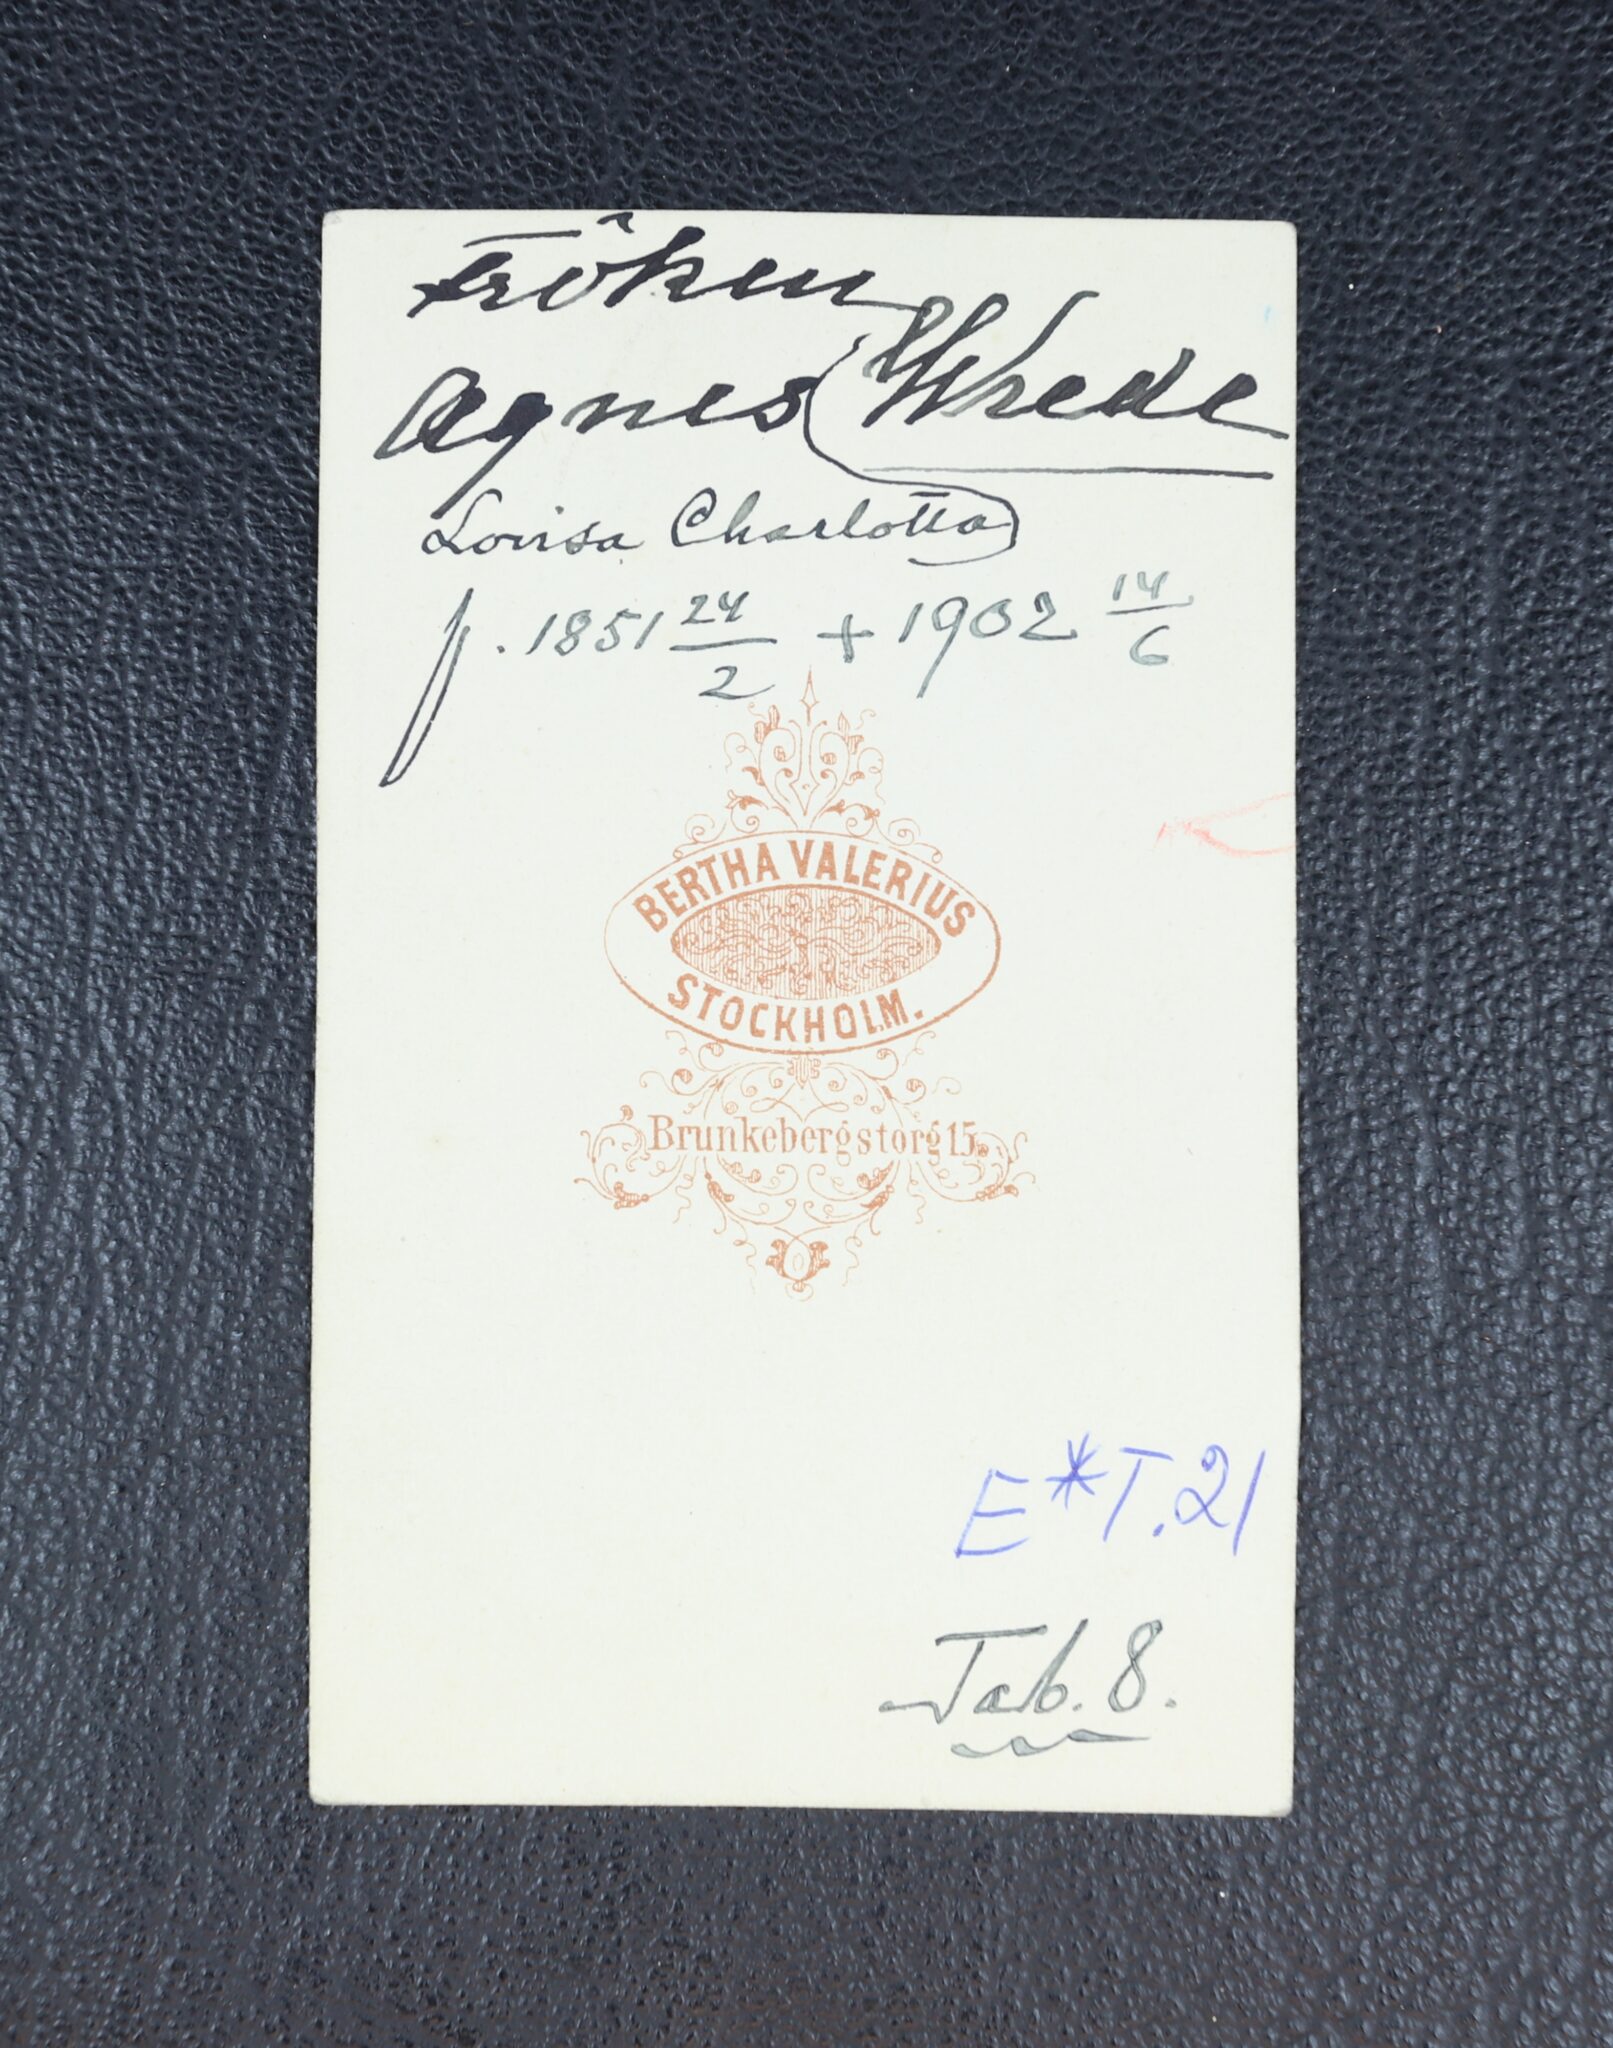 Fröken
Agnes Wrede
Lovisa Charlotta
f. 1851 24/2 + 1902 14/6
BERTHA VALERIUS
STOCKHOLM.
Brunkebergstorg 15.
E*T.21
Tab. 8.